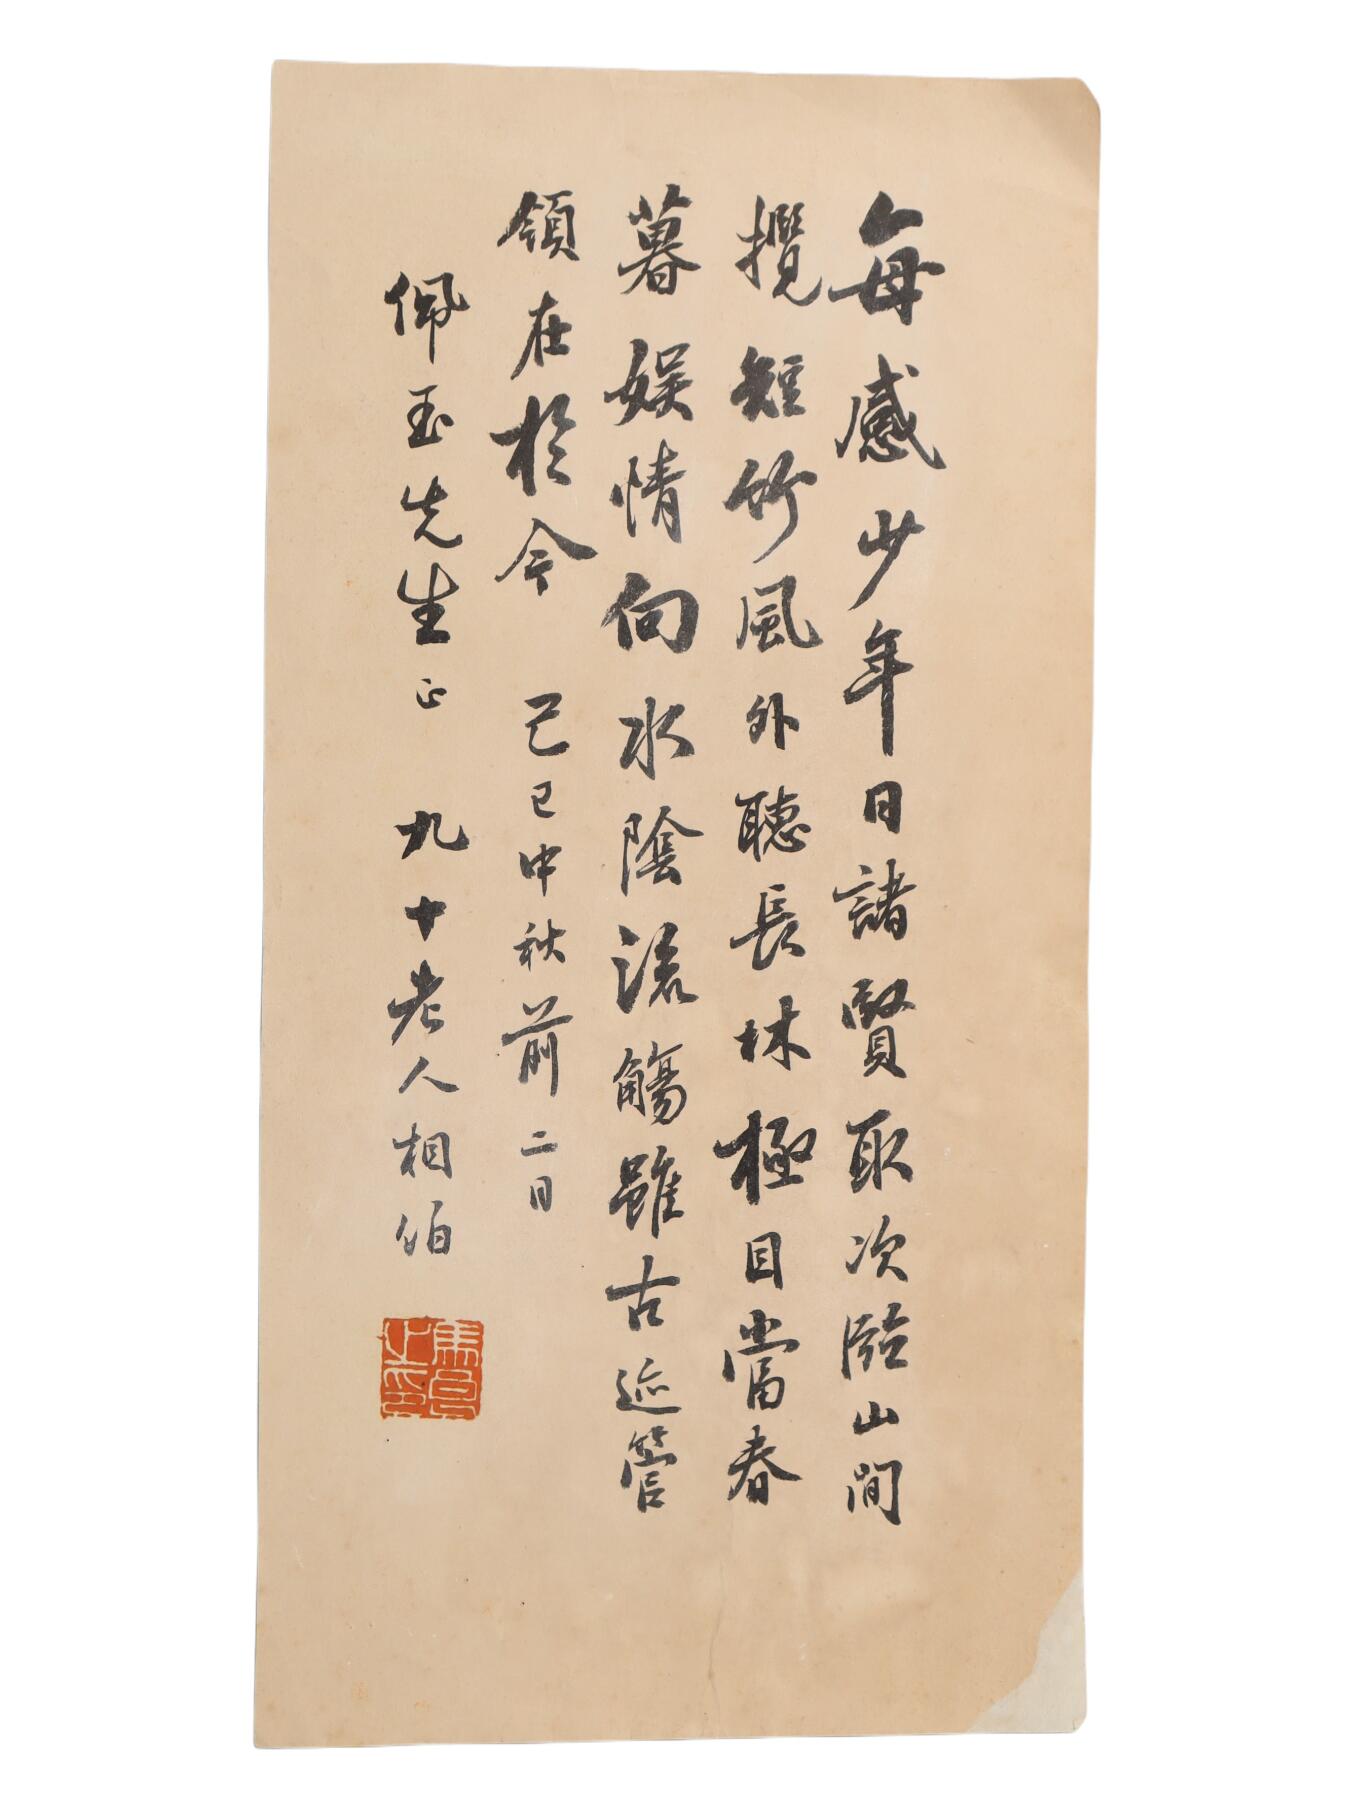 每感少年日諸賢取次臨山間
攬短竹風外聽長林極目當春
暮娱情向水陰流觴雖古迹管
領在於今 己巳中秋前二日
佩玉先生正 九十老人相伯